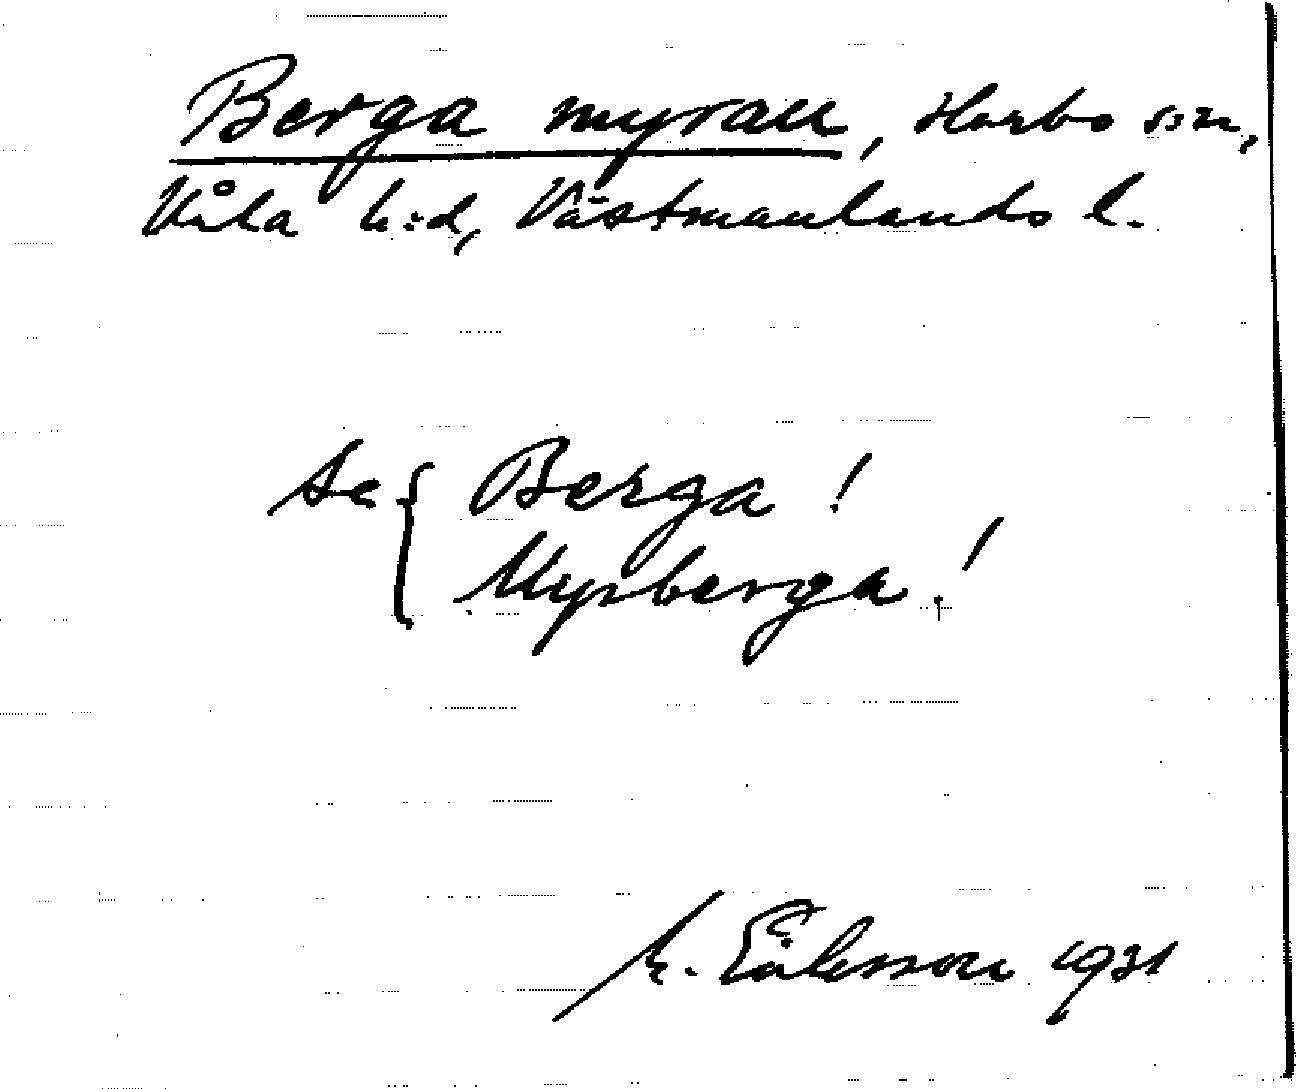 Berga myran, Harbo sn,
Våla h:d, Västmanlands l.
Se { Berga!
Myrberga!
M. Eriksson 1931